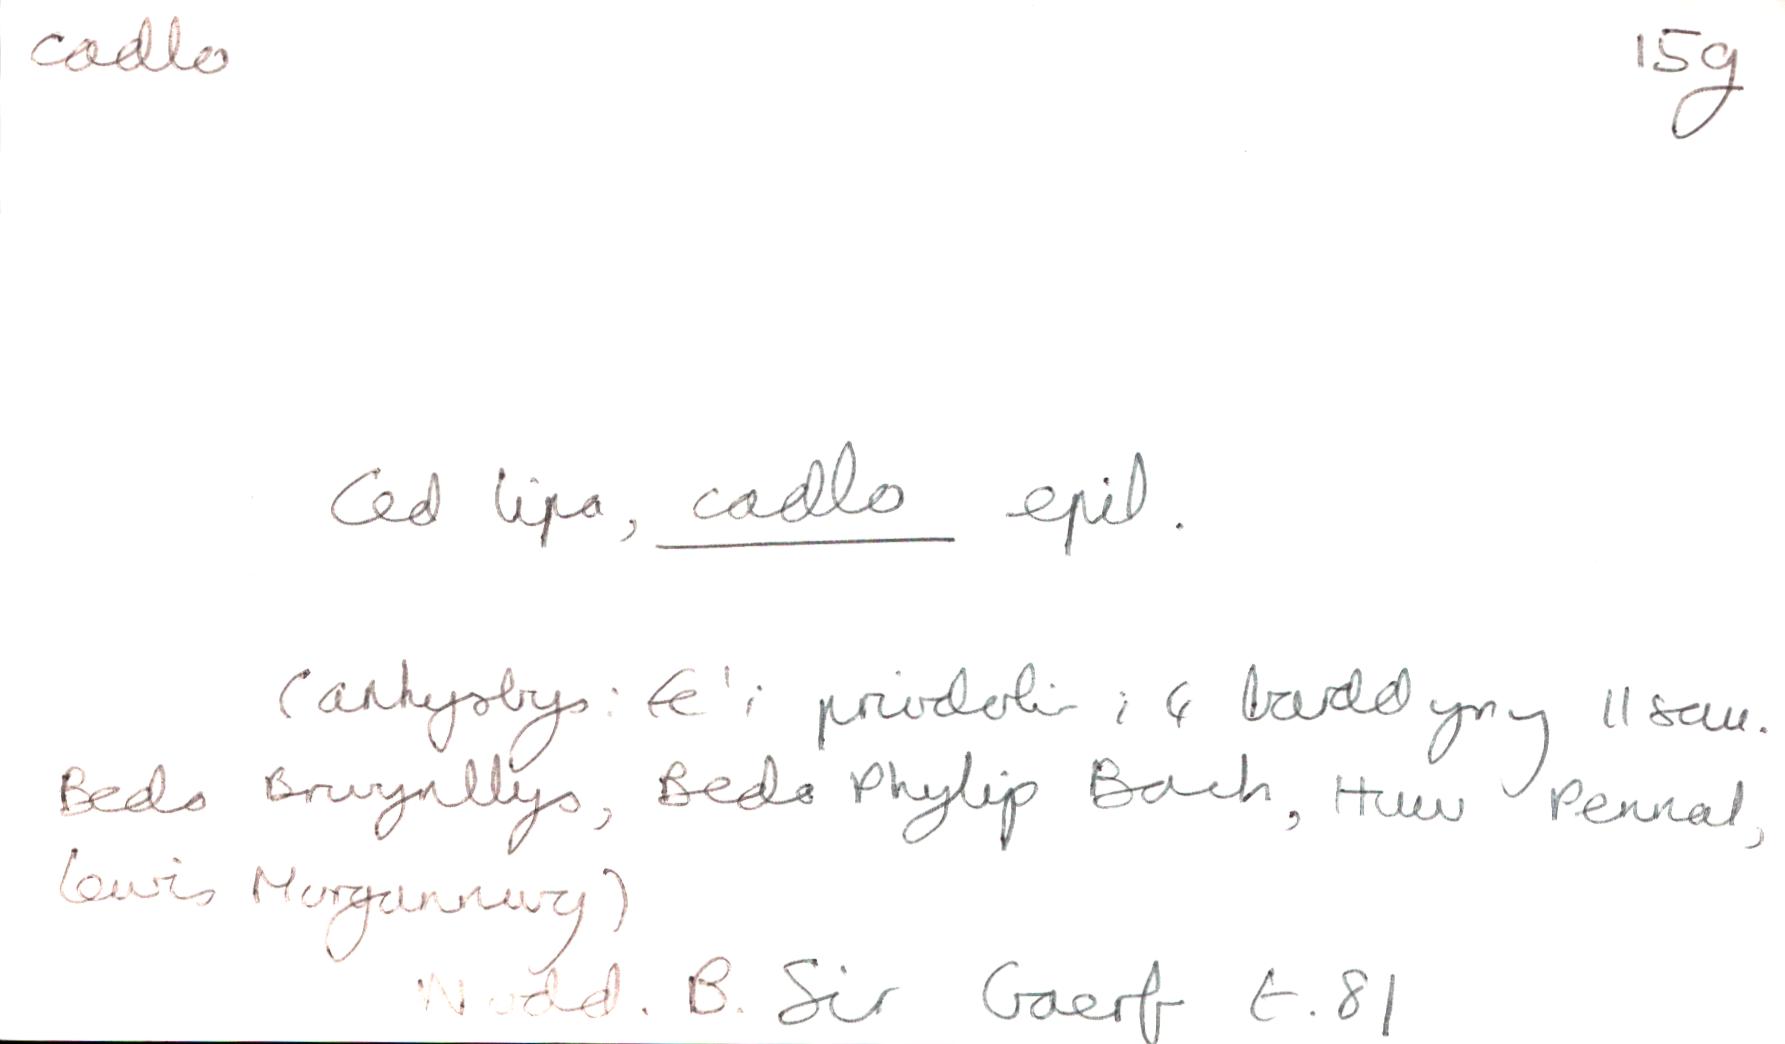 cadlo 15g
Ced lipa, cadlo epil.
(anhysbys: fe'i priodolir i 4 bardd yn y llsau.
Bedo Brwynllys, Bedo Phylip Bach, Huw Pennal,
Lewis Morgannwg)
Nodd. B. Sir Gaerf t. 81